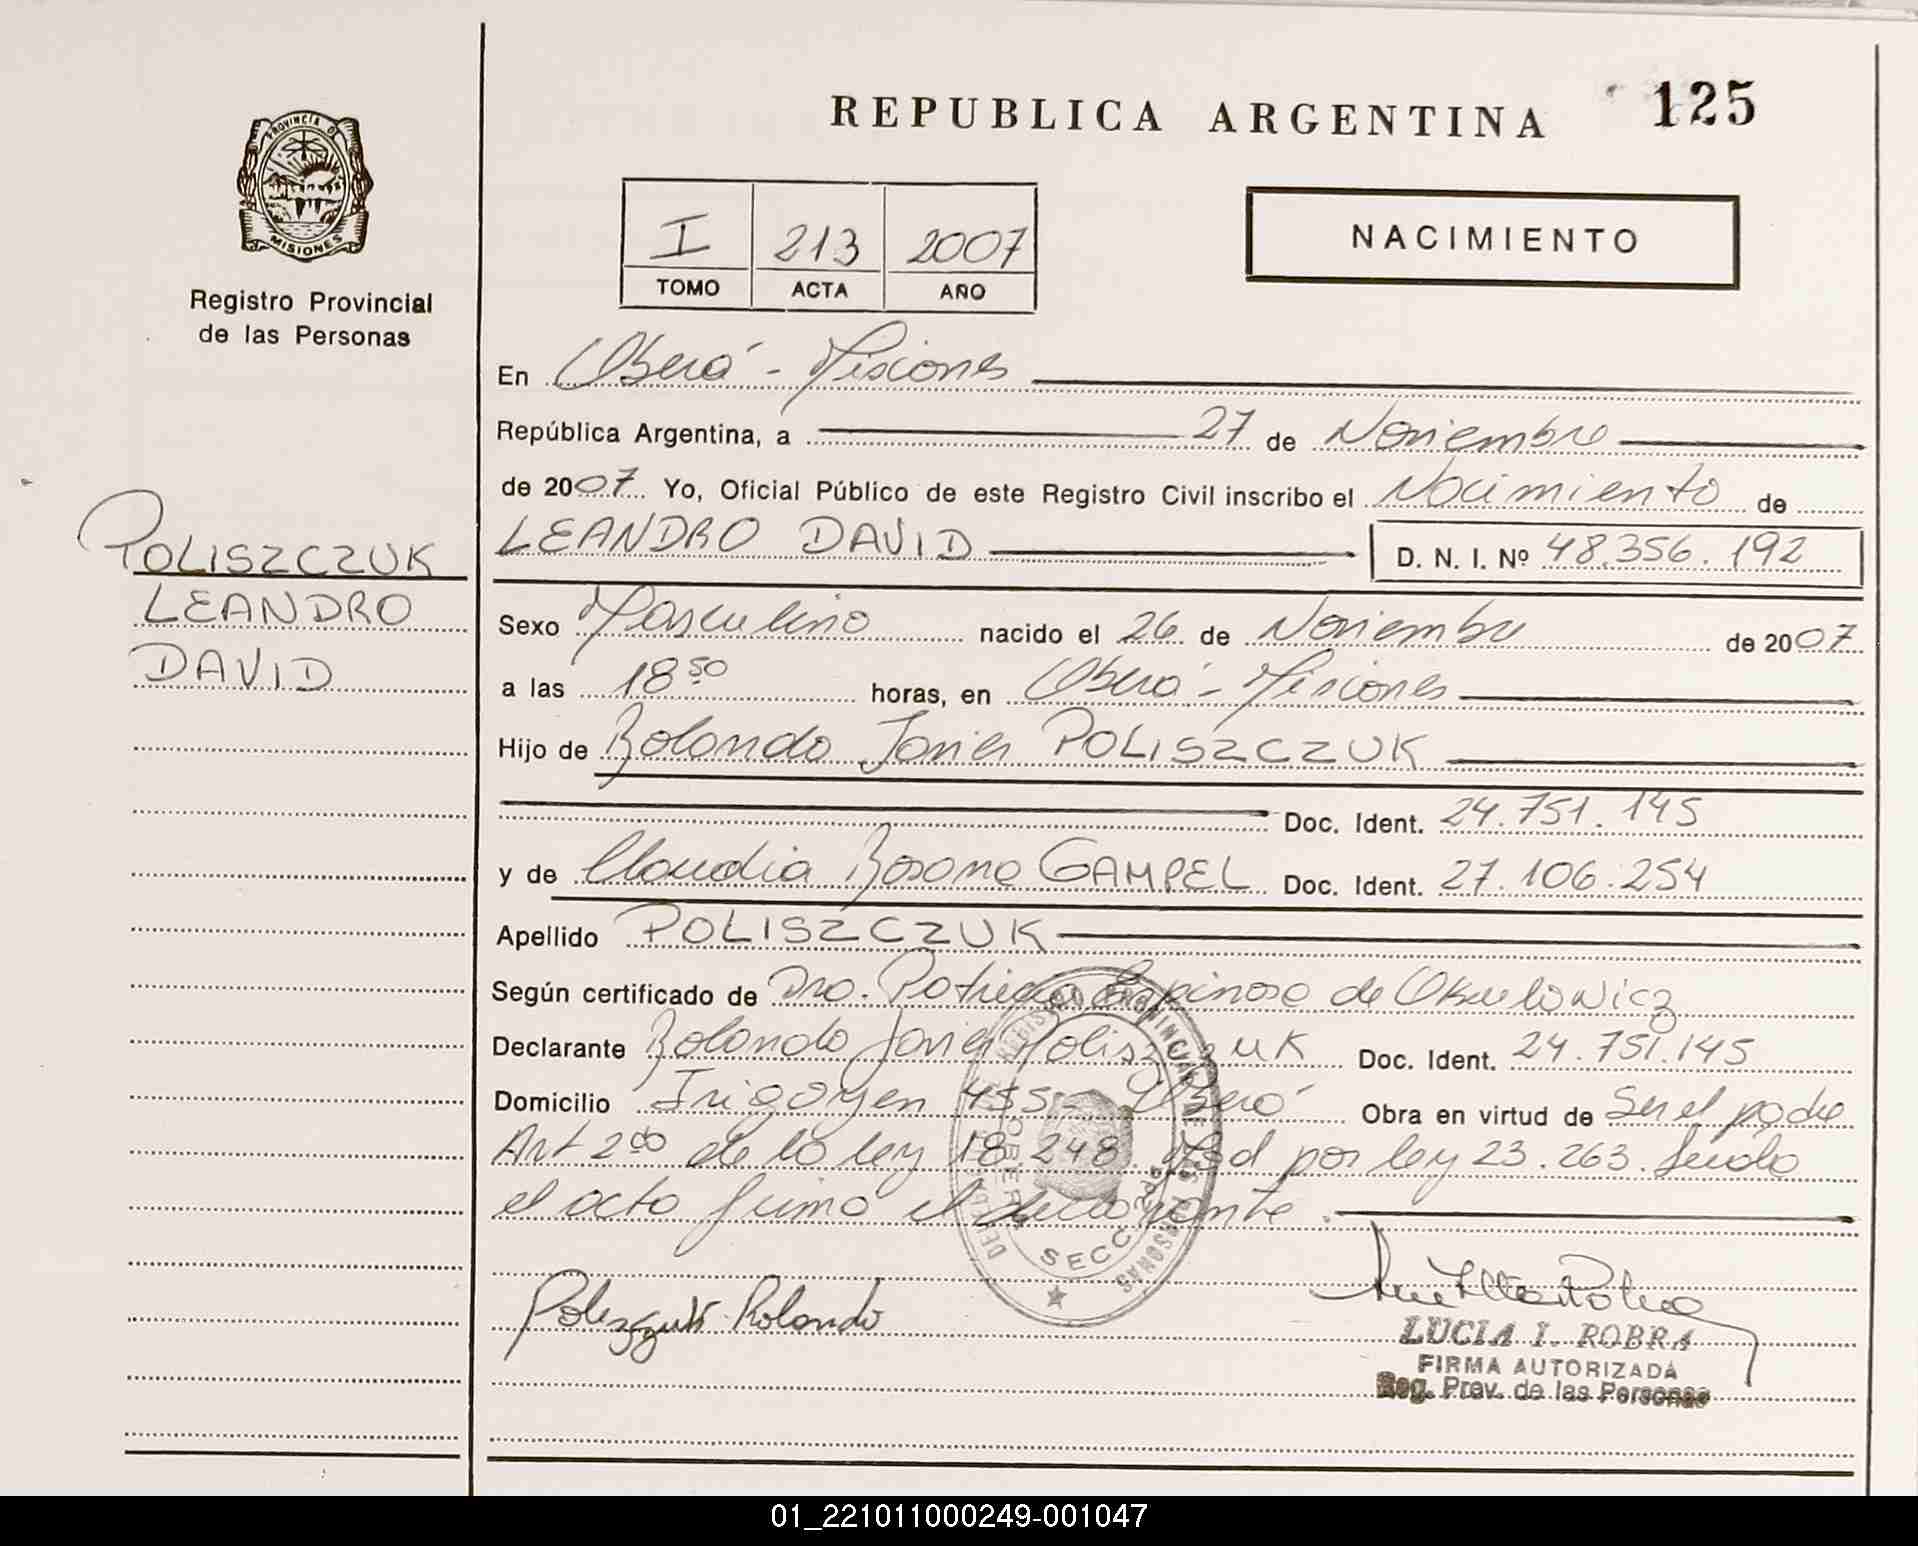 REPUBLICA ARGENTINA
125
PROVINCIA D
MISIONES
Registro Provincial
de las Personas
I 213 2007
TOMO ACTA AÑO
NACIMIENTO
En Oberá - Misiones
República Argentina, a 27 de Noviembre
de 2007 Yo, Oficial Público de este Registro Civil inscribo el Nacimiento de
LEANDRO DAVID D. N. I. Nº 48.356.192
POLISZCZUK
LEANDRO
DAVID
Sexo Masculino nacido el 26 de Noviembre de 2007
a las 18 50 horas, en Oberá - Misiones
Hijo de Rolando Javier POLISZCZUK
Doc. Ident. 24.751.145
y de Claudia Rosana GAMPEL Doc. Ident. 27.106.254
Apellido POLISZCZUK
Según certificado de Dra. Patricia Espinosa de Okulowicz
Declarante Rolando Javier Poliszczuk Doc. Ident. 24.751.145
Domicilio Irigoyen 455 - Oberá Obra en virtud de Ser el padre
Art 2do de la ley 18.248. Mod por ley 23.263. Leída
el acta firma el declarante.
SECC
Poliszczuk Rolando
LUCIA I. ROBRA
FIRMA AUTORIZADA
Reg. Prov. de las Personas
01_221011000249-001047